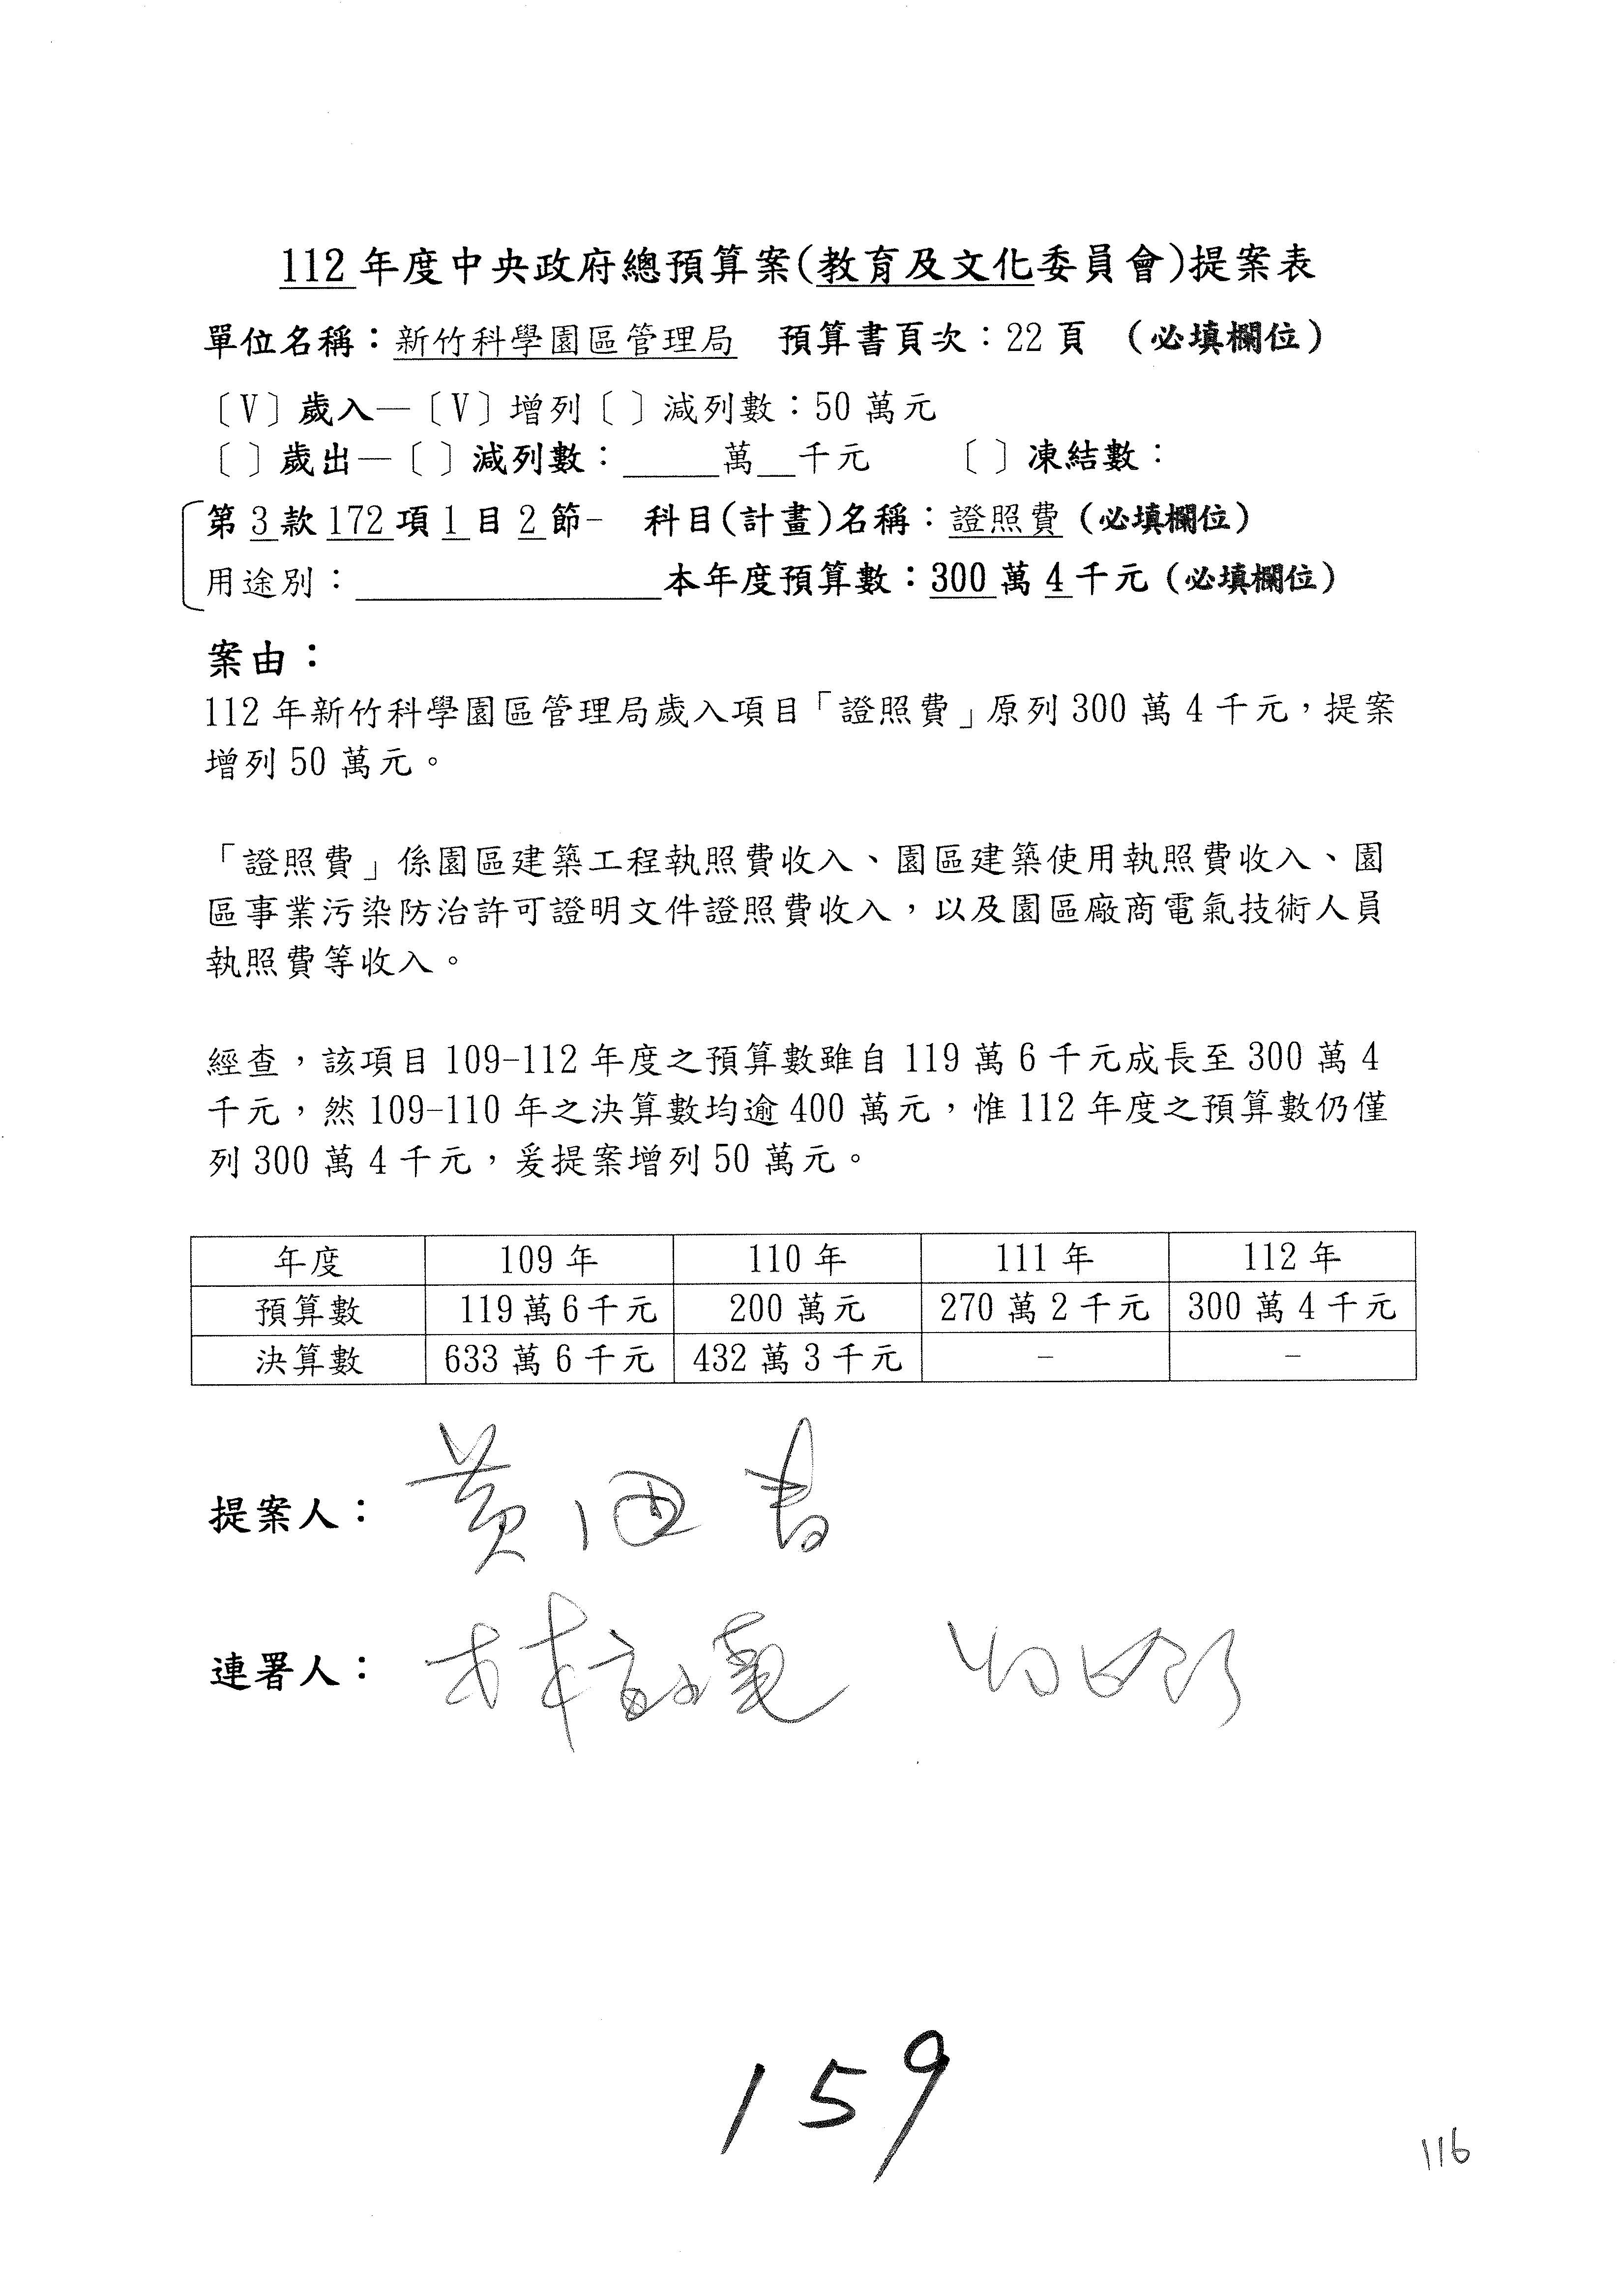 112年度中央政府總預算案(教育及文化委員會)提案表
單位名稱：新竹科學園區管理局 預算書頁次：22頁 (必填欄位)
〔V〕歲入—〔V〕增列〔 〕減列數：50萬元
〔 〕歲出—〔 〕減列數：_____萬__千元 〔 〕凍結數：
第3款172項1目2節- 科目(計畫)名稱：證照費(必填欄位)
用途別：________________本年度預算數：300萬4千元(必填欄位)
案由：
112年新竹科學園區管理局歲入項目「證照費」原列300萬4千元，提案
增列50萬元。
「證照費」係園區建築工程執照費收入、園區建築使用執照費收入、園
區事業污染防治許可證明文件證照費收入，以及園區廠商電氣技術人員
執照費等收入。
經查，該項目109-112年度之預算數雖自119萬6千元成長至300萬4
千元，然109-110年之決算數均逾400萬元，惟112年度之預算數仍僅
列300萬4千元，爰提案增列50萬元。
年度 109年 110年 111年 112年
預算數 119萬6千元 200萬元 270萬2千元 300萬4千元
決算數 633萬6千元 432萬3千元 - -
提案人：黃國書
連署人：
159
116